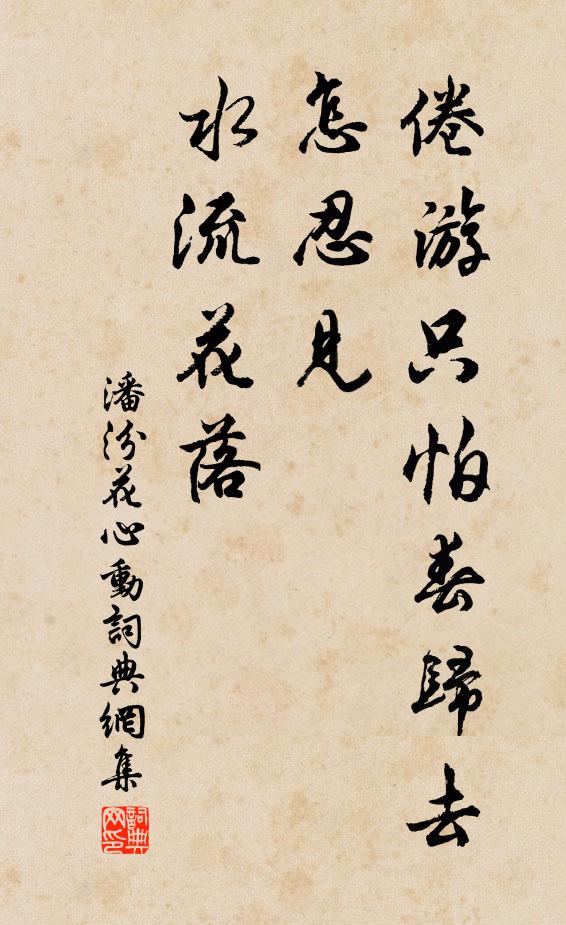 倦游只怕春歸去
怎忍見
水流花落
潘汾花心動詞典網集
詞典網印